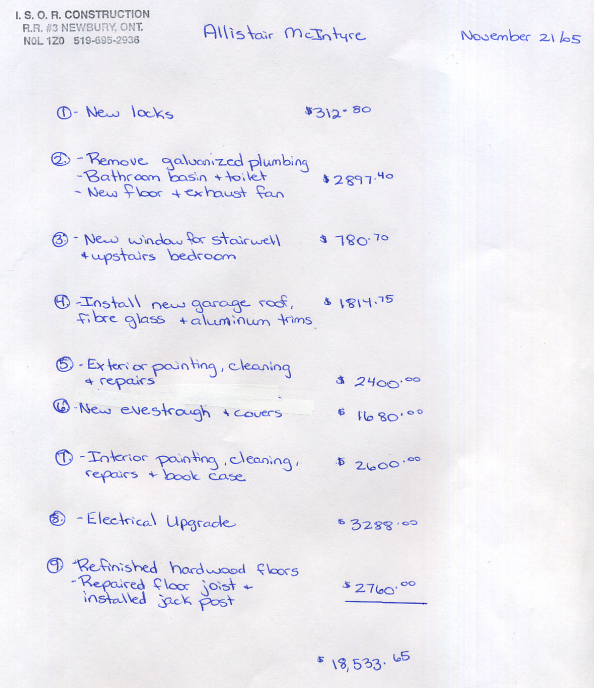 I. S. O. R. CONSTRUCTION
R.R. #3 NEWBURY, ONT.
N0L 1Z0 519-695-2936
Allistair McIntyre
November 21/05
① - New locks $312.80
② - Remove galvanized plumbing
- Bathroom basin + toilet $2897.40
- New floor + exhaust fan
③ - New window for stairwell $780.70
+ upstairs bedroom
④ - Install new garage roof, $1814.75
fibre glass + aluminum trims
⑤ - Exterior painting, cleaning
+ repairs $2400.00
⑥ - New evestrough + covers $1680.00
⑦ - Interior painting, cleaning, $2600.00
repairs + book case
⑧ - Electrical Upgrade $3288.00
⑨ - Refinished hardwood floors
- Repaired floor joist + $2760.00
installed jack post
$18,533.65